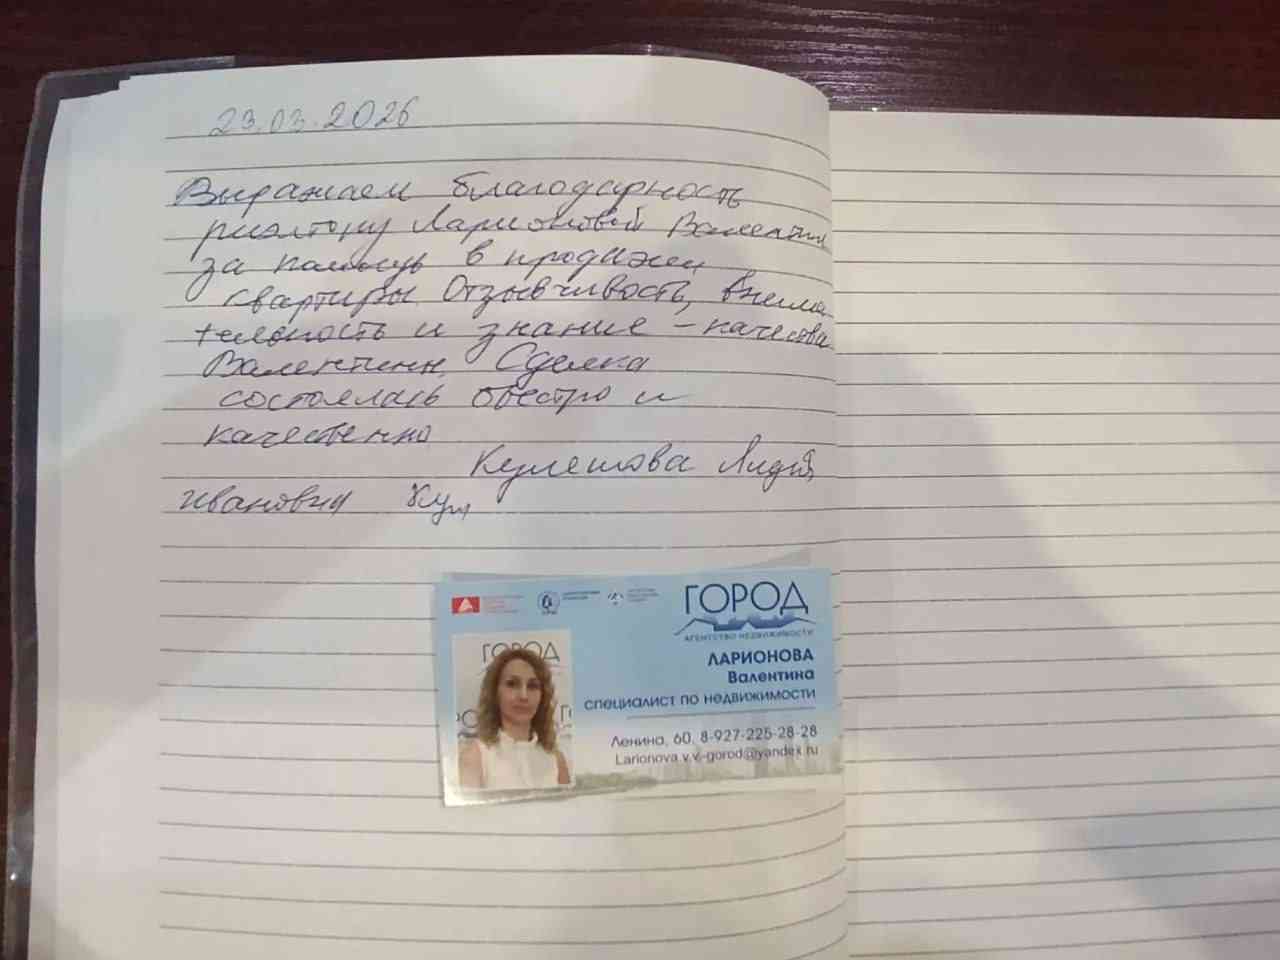 23.03.2026
Выражаем благодарность
риэлтору Ларионовой Валентин
за помощь в продажи
квартиры. Отзывчивость, внима
тельность и знание – качества
Валентины. Сделка
состоялась быстро и
качественно
Кулешова Лидия
Ивановна
ГОРОД
АГЕНТСТВО НЕДВИЖИМОСТИ
ЛАРИОНОВА
Валентина
специалист по недвижимости
Ленина, 60, 8-927-225-28-28
Larionova.v.v.-gorod@yandex.ru
ГОРОД